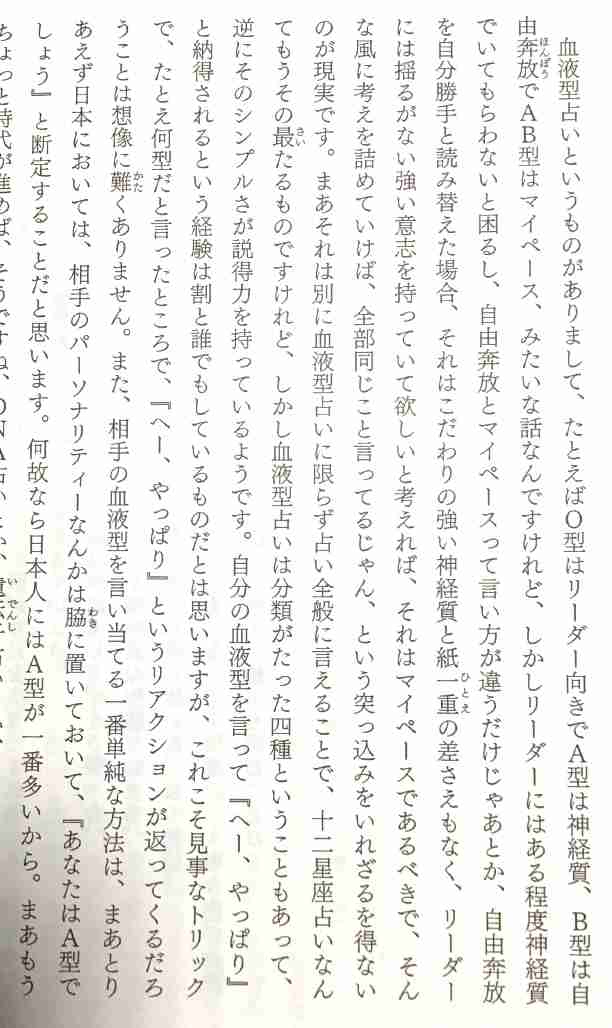 血液型占いというものがありまして、たとえばO型はリーダー向きでA型は神経質、B型は自
由奔放でAB型はマイペース、みたいな話なんですけれど、しかしリーダーにはある程度神経質
でいてもらわないと困るし、自由奔放とマイペースって言い方が違うだけじゃあとか、自由奔放
を自分勝手と読み替えた場合、それはこだわりの強い神経質と紙一重の差さえもなく、リーダー
には揺るがない強い意志を持っていて欲しいと考えれば、それはマイペースであるべきで、そん
な風に考えを詰めていけば、全部同じこと言ってるじゃん、という突っ込みをいれざるを得ない
のが現実です。まあそれは別に血液型占いに限らず占い全般に言えることで、十二星座占いなん
てもうその最たるものですけれど、しかし血液型占いは分類がたった四種ということもあって、
逆にそのシンプルさが説得力を持っているようです。自分の血液型を言って『へー、やっぱり』
と納得されるという経験は割と誰でもしているものだとは思いますが、これこそ見事なトリック
で、たとえ何型だと言ったところで、『へー、やっぱり』というリアクションが返ってくるだろ
うことは想像に難くありません。また、相手の血液型を言い当てる一番単純な方法は、まあとり
あえず日本においては、相手のパーソナリティーなんかは脇に置いておいて、『あなたはA型で
しょう』と断定することだと思います。何故なら日本人にはA型が一番多いから。まあもう
ちょっと時代が進めば、そうですね、DNA占いとか、